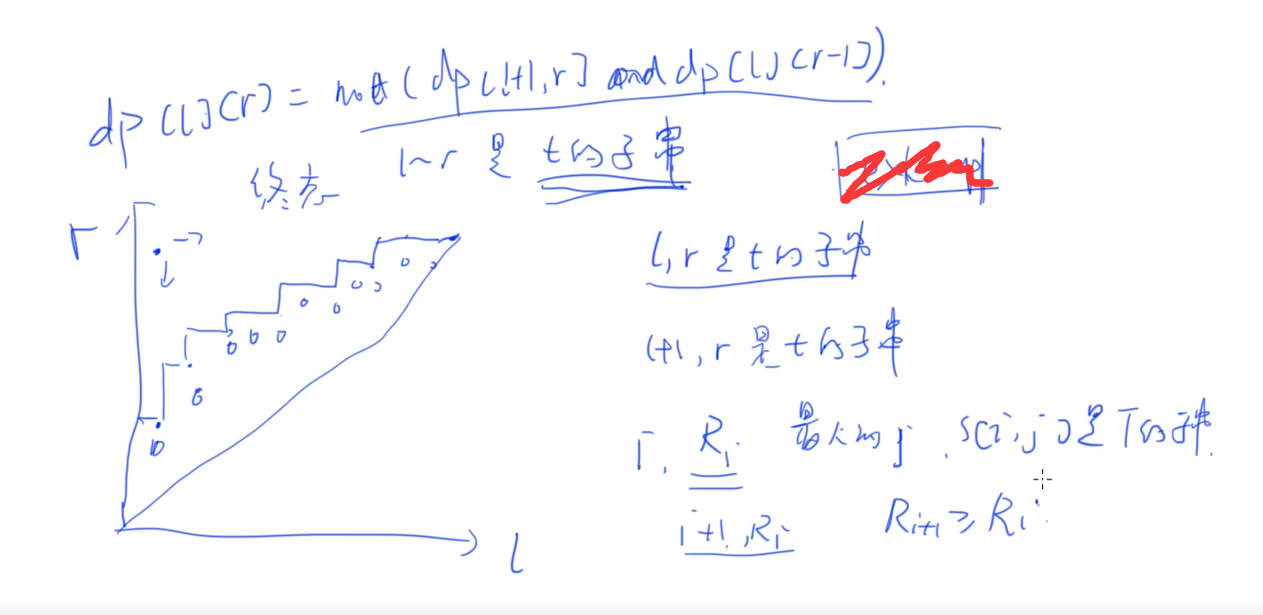 dp[l][r] = not(dp[l+1,r] and dp[l][r-1]).
终态 l~r 是 t的子串
r
l,r 是 t 的子串
l+1,r 是 t 的子串
i, Ri 最大的j, S[i,j]是T的子串.
i+1,Ri Ri+1 ≥ Ri
l